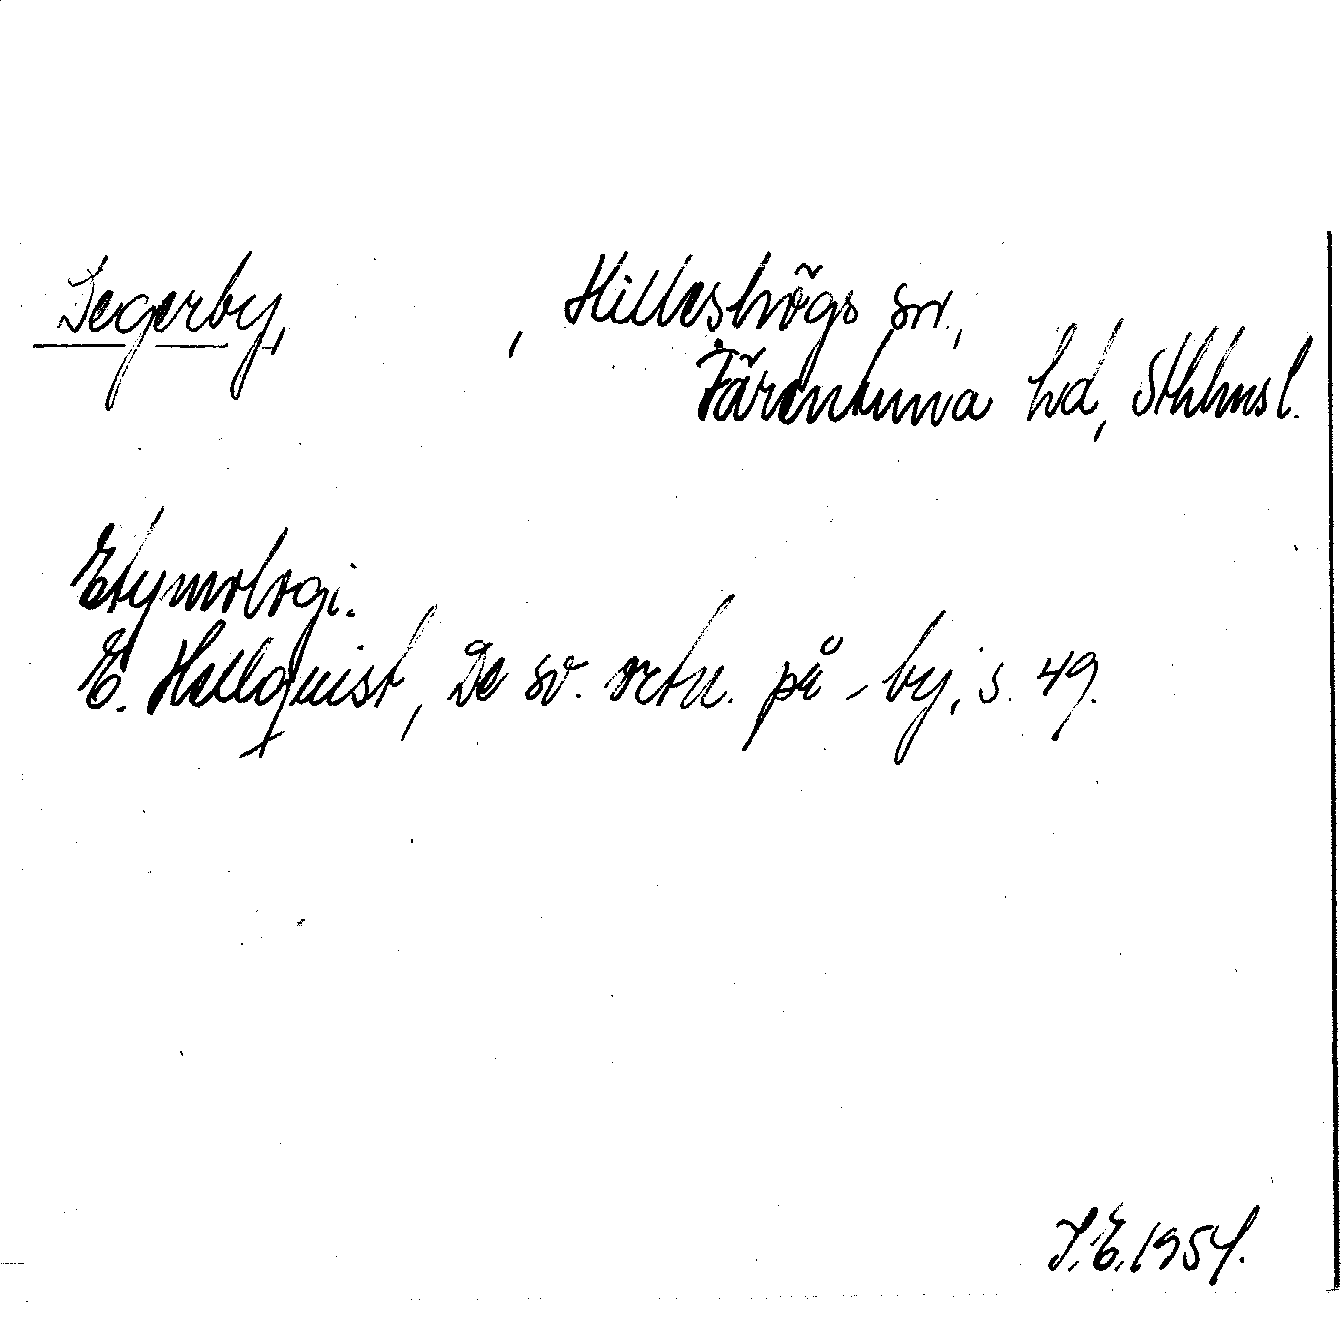 Segerby, , Hilleshögs sn.,
Färentuna hd, Sthlmsl.
Etymologi.
E. Hellquist, De sv. ortn. på -by, s. 49.
I.E. 1954.